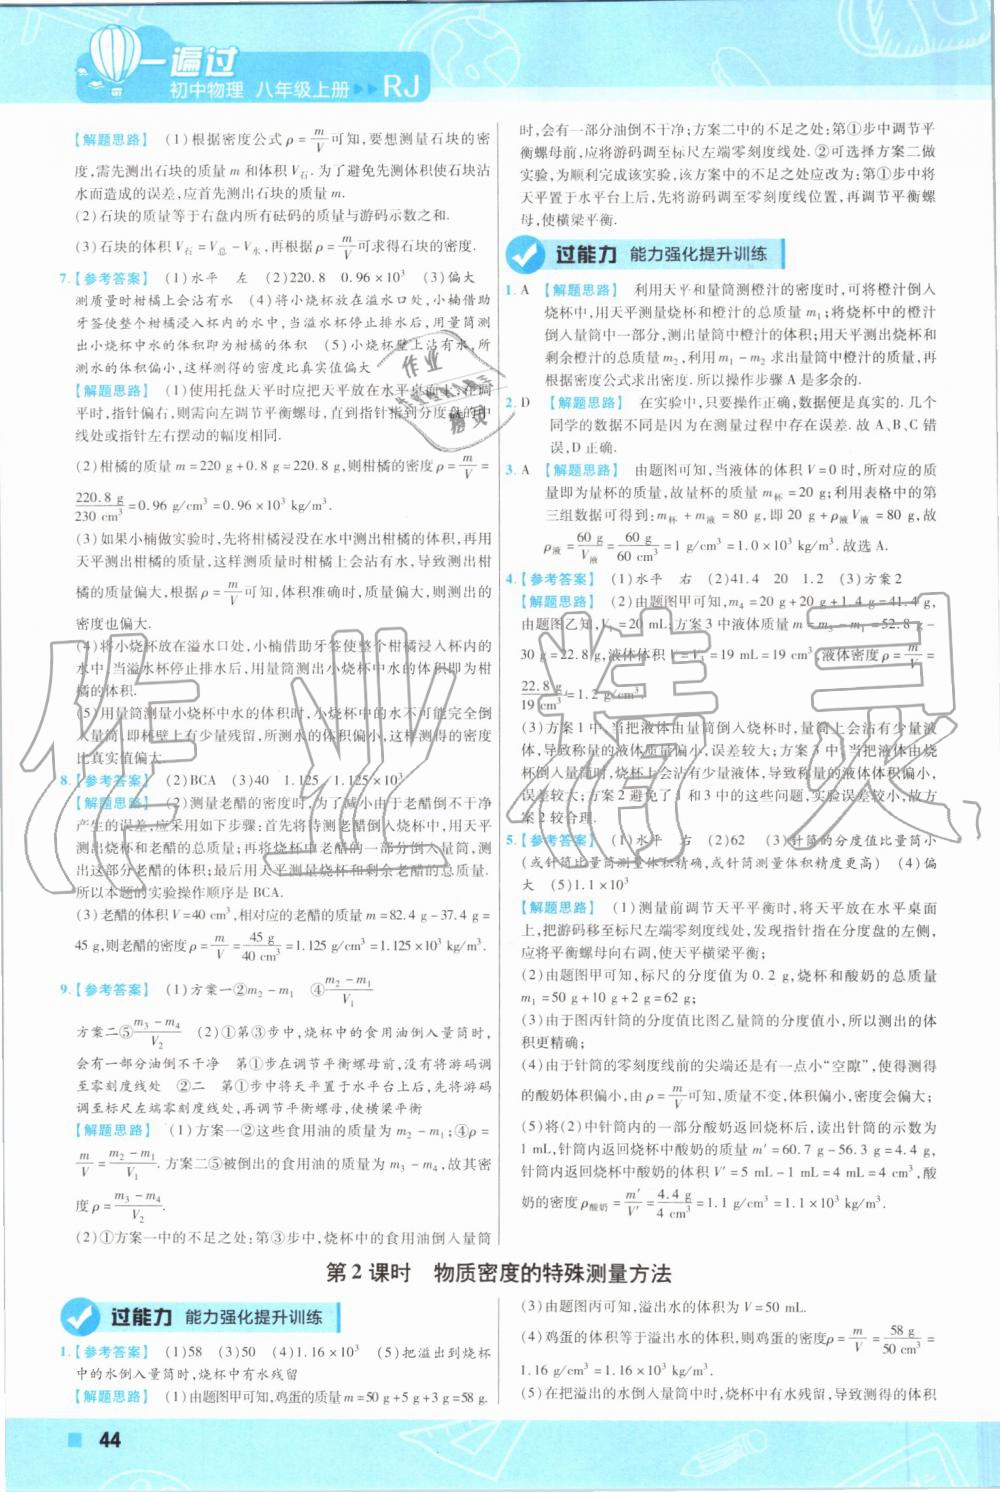 一遍过
初中物理 八年级上册 RJ
【解题思路】 (1)根据密度公式ρ=m/V可知,要想测量石块的密
度,需先测出石块的质量m和体积V石.为了避免先测体积使石块沾
水而造成的误差,应首先测出石块的质量m.
(2)石块的质量等于右盘内所有砝码的质量与游码示数之和.
(3)石块的体积V石=V总-V水,再根据ρ=m/V可求得石块的密度.
7.【参考答案】 (1)水平 左 (2)220.8 0.96×10³ (3)偏大
测质量时柑橘上会沾有水 (4)将小烧杯放在溢水口处,小楠借助
牙签使整个柑橘浸入杯内的水中,当溢水杯停止排水后,用量筒测
出小烧杯中水的体积即为柑橘的体积 (5)小烧杯壁上沾有水,所
测水的体积偏小,这样测得的密度比真实值偏大
【解题思路】 (1)使用托盘天平时应把天平放在水平桌面上,在调
平时,指针偏右,则需向左调节平衡螺母,直到指针指到分度盘的中
线处或指针左右摆动的幅度相同.
(2)柑橘的质量m=220 g+0.8 g=220.8 g,则柑橘的密度ρ=m/V=
220.8 g/230 cm³=0.96 g/cm³=0.96×10³ kg/m³.
(3)如果小楠做实验时,先将柑橘浸没在水中测出柑橘体积,再用
天平测出柑橘的质量,这样测质量时柑橘上会沾有水,导致所测柑
橘的质量偏大,根据ρ=m/V可知,体积准确时,质量偏大,则测出的
密度也偏大.
(4)将小烧杯放在溢水口处,小楠借助牙签使整个柑橘浸入杯内的
水中,当溢水杯停止排水后,用量筒测出小烧杯中水的体积即为柑
橘的体积.
(5)用量筒测量小烧杯中水的体积时,小烧杯中的水不可能完全倒
入量筒,即杯壁上有少量残留,所测水的体积偏小,这样测得的密度
比真实值偏大.
8.【参考答案】 (2)BCA (3)40 1.125 1.125×10³
【解题思路】 (2)测量老醋的密度时,为了减小由于老醋倒不干净
产生的误差,应采用如下步骤:首先将待测老醋倒入烧杯中,用天平
测出烧杯和老醋的总质量;再将烧杯中老醋的一部分倒入量筒,测
出这部分老醋的体积;最后用天平测量烧杯和剩余老醋的总质量.
所以本题的实验操作顺序是BCA.
(3)老醋的体积V=40 cm³,相对应的老醋的质量m=82.4 g-37.4 g=
45 g,则老醋的密度ρ=m/V=45 g/40 cm³=1.125 g/cm³=1.125×10³ kg/m³.
9.【参考答案】 (1)方案一②m₂-m₁ ④(m₂-m₁)/V₁
方案二⑤(m₃-m₄)/V₂ (2)①第③步中,烧杯中的食用油倒入量筒时,
会有一部分油倒不干净 第①步在调节平衡螺母前,没有将游码调
至零刻度线处 ②二 第①步中将天平置于水平台上后,先将游码
调至标尺左端零刻度线处,再调节平衡螺母,使横梁平衡
【解题思路】 (1)方案一②这些食用油的质量为m₂-m₁;④ρ=
m/V=(m₂-m₁)/V₁.方案二⑤被倒出的食用油质量为m₃-m₄,故其密
度ρ=(m₃-m₄)/V₂.
(2)①方案一中的不足之处:第③步中,烧杯中的食用油倒入量筒
时,会有一部分油倒不干净;方案二中的不足之处:第①步中调节平
衡螺母前,应将游码调至标尺左端零刻度线处. ②可选择方案二做
实验,为顺利完成该实验,该方案中的不足之处应改为:第①步中将
天平置于水平台上后,先将游码调至零刻度线位置,再调节平衡螺
母,使横梁平衡.
过能力 能力强化提升训练
1. A 【解题思路】 利用天平和量筒测橙汁的密度时,可将橙汁倒入
烧杯中,用天平测量烧杯和橙汁的总质量m₁;将烧杯中的橙汁
倒入量筒中一部分,测出量筒中橙汁的体积;用天平测出烧杯和
剩余橙汁的总质量m₂,利用m₁-m₂求出量筒中橙汁的质量,再
根据密度公式求出密度.所以操作步骤A是多余的.
2. D 【解题思路】 在实验中,只要操作正确,数据便是真实的.几个
同学的数据不同是因为在测量过程中存在误差.故A、B、C错
误,D正确.
3. A 【解题思路】 由题图可知,当液体的体积V=0时,所对应的质
量即为量杯的质量,故量杯的质量m杯=20 g;利用表格中的第
三组数据可得到:m杯+m液=80 g,即20 g+ρ液V液=80 g,故
ρ液=60 g/V液=60 g/60 cm³=1 g/cm³=1.0×10³ kg/m³.故选A.
4.【参考答案】 (1)水平 右 (2)41.4 20 1.2 (3)方案2
【解题思路】 (2)由题图甲可知,m₄=20 g+20 g+1.4 g=41.4 g,
由题图乙知,V₁=20 mL.方案3中液体质量m=m₅-m₆=52.8 g-
30 g=22.8 g,液体体积V=V₃=19 mL=19 cm³,液体密度ρ=m/V=
22.8 g/19 cm³=1.2 g/cm³.
(3)方案1中,当把液体由量筒倒入烧杯时,量筒上会沾有少量液
体,导致称量的液体质量偏小,误差较大;方案3中,当把液体由烧
杯倒入量筒时,烧杯上会沾有少量液体,导致称量的液体体积偏小,
误差较大;方案2避免了1和3中的这些问题,实验误差较小,故方
案2较合理.
5.【参考答案】 (1)水平 右 (2)62 (3)针筒的分度值比量筒小
(或针筒比量筒测量体积精确,或针筒测量体积精度更高) (4)偏
大 (5)1.1×10³
【解题思路】 (1)测量前调节天平平衡时,将天平放在水平桌面
上,把游码移至标尺左端零刻度线处,发现指针指在分度盘的左侧,
应将平衡螺母向右调,使天平横梁平衡;
(2)由题图甲可知,标尺的分度值为0.2 g,烧杯和酸奶的总质量
m₁=50 g+10 g+2 g=62 g;
(3)由于图丙针筒的分度值比图乙量筒的分度值小,所以测出的体
积更精确;
(4)由于针筒的零刻度线前的尖端还是有一点小“空隙”,使得测得
的酸奶体积偏小,由ρ=m/V可知,质量不变,体积偏小,密度会偏大;
(5)将(2)中针筒内的一部分酸奶返回烧杯后,读出针筒的示数为
1 mL,针筒内返回烧杯中酸奶的质量m′=60.7 g-56.3 g=4.4 g,
针筒内返回烧杯中酸奶的体积V′=5 mL-1 mL=4 mL=4 cm³,酸
奶的密度ρ酸奶=m′/V′=4.4 g/4 cm³=1.1 g/cm³=1.1×10³ kg/m³.
第2课时 物质密度的特殊测量方法
过能力 能力强化提升训练
1.【参考答案】 (1)58 (3)50 (4)1.16×10³ (5)把溢出到烧杯
中的水倒入量筒时,烧杯中有水残留
【解题思路】 (1)由题图甲可知,鸡蛋的质量m=50 g+5 g+3 g=58 g.
(3)由题图丙可知,溢出水的体积为V=50 mL.
(4)鸡蛋的体积等于溢出水的体积,则鸡蛋的密度ρ=m/V=58 g/50 cm³=
1.16 g/cm³=1.16×10³ kg/m³.
(5)在把溢出的水倒入量筒中时,烧杯中有水残留,导致测得的体积
44
作业
精灵